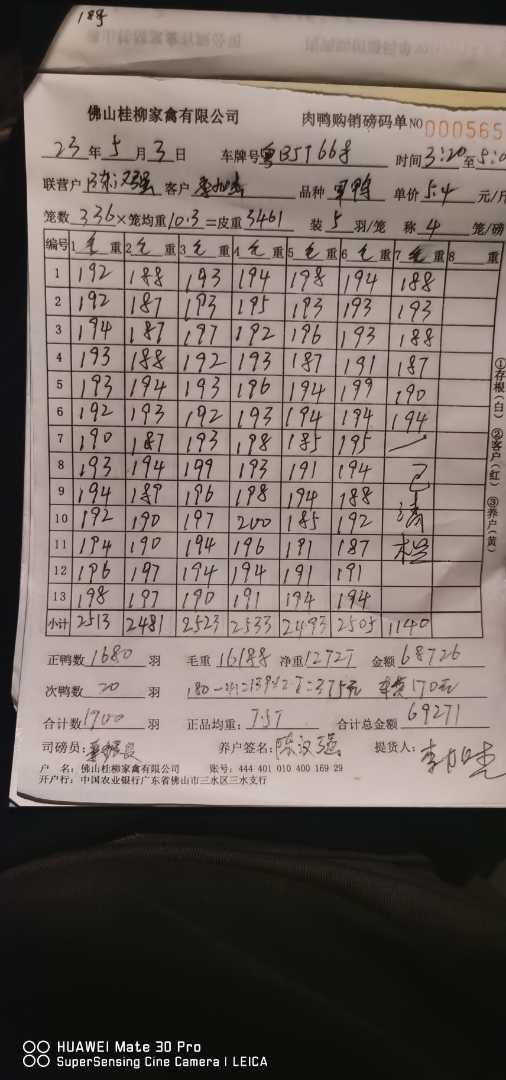 189
佛山桂柳家禽有限公司 肉鸭购销磅码单 NO 000565
23 年 5 月 3 日 车牌号 粤B59668 时间 3:20 至 5:0
联营户 陈汉强 客户 品种 单价 5.4 元/斤
笼数 336 × 笼均重 10.3 = 皮重 3461 装 5 羽/笼 称 4 笼/磅
编号 1 毛 重 2 毛 重 3 毛 重 4 毛 重 5 毛 重 6 毛 重 7 毛 重 8 重
1 192 188 193 194 198 194 188
2 192 187 193 195 193 193 193
3 194 187 197 192 196 193 188
4 193 188 192 193 187 191 187
5 193 194 193 196 194 199 190
6 192 193 192 193 194 194 194
7 190 187 193 198 185 195
8 193 194 199 193 191 194 已
9 194 189 196 198 194 188 清
10 192 190 197 200 185 192
11 194 190 194 196 191 187
12 196 197 194 194 191 191
13 198 197 190 191 194 194
小计 2513 2481 2523 2533 2493 2505 1140
①存根(白) ②客户(红) ③养户(黄)
正鸭数 1680 羽 毛重 16188 净重 12727 金额 68726
次鸭数 20 羽 375元 170元
合计数 1700 羽 正品均重: 7.57 合计总金额 69271
司磅员: 养户签名: 陈汉强 提货人:
户 名: 佛山桂柳家禽有限公司 账号: 444 401 010 400 169 29
开户行: 中国农业银行广东省佛山市三水区三水支行
HUAWEI Mate 30 Pro
SuperSensing Cine Camera | LEICA